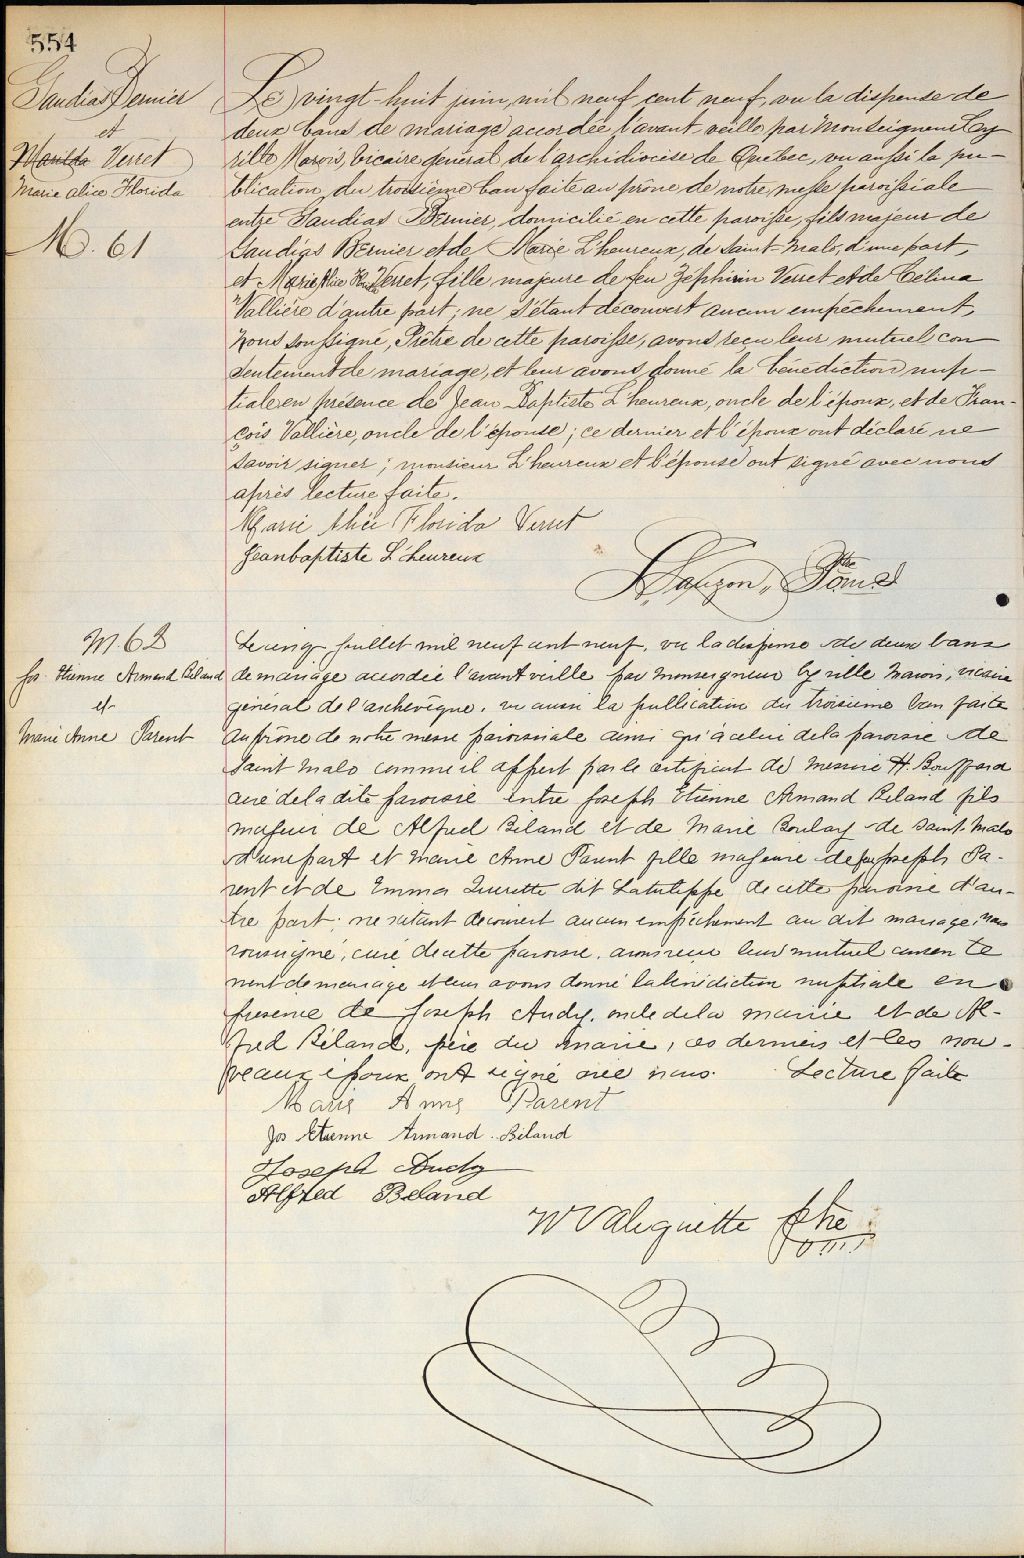 554
Gaudias Bernier
et
Marilda Verret
Marie Alice Florida
M. 61
Le vingt-huit juin, mil neuf cent neuf, vu la dispense de
deux bans de mariage accordée l'avant-veille, par Monseigneur Cy-
rille Marois, vicaire général de l'archidiocèse de Québec, vu aussi la pu-
blication du troisième ban faite au prône de notre messe paroissiale
entre Gaudias Bernier, domicilié en cette paroisse, fils majeur de
Gaudias Bernier et de Marie L'heureux, de Saint-Malo, d'une part,
et Marie Alice Florida Verret, fille majeure de feu Zéphirin Verret et de Célina
Vallière d'autre part; ne s'étant découvert aucun empêchement,
Nous soussigné, Prêtre de cette paroisse, avons reçu leur mutuel con
sentement de mariage, et leur avons donné la bénédiction nup-
tiale en présence de Jean Baptiste L'heureux, oncle de l'époux, et de Fran-
çois Vallière, oncle de l'épouse; ce dernier et l'époux ont déclaré ne
savoir signer; monsieur L'heureux et l'épouse ont signé avec nous
après lecture faite.
Marie Alice Florida Verret
Jeanbaptiste L'heureux
Lauzon, Ptre o.m.i.
M. 62
Jos. Etienne Armand Béland
et
Marie Anne Parent
Le cinq juillet mil neuf cent neuf, vu la dispense de deux bans
de mariage accordée l'avant veille par Monseigneur Cyrille Marois, vicaire
général de l'archevêque, vu aussi la publication du troisieme ban faite
au prône de notre messe paroissiale ainsi qu'à celui de la paroisse de
Saint Malo comme il appert par le certificat de Messire H. Bouffard
curé de la dite paroisse entre Joseph Etienne Armand Béland fils
majeur de Alfred Béland et de Marie Boulay de Saint-Malo
d'une part et Marie Anne Parent fille majeure de feu Joseph Pa-
rent et de Emma Turcotte dit Latulippe de cette paroisse d'au-
tre part; ne s'etant decouvert aucun empêchement au dit mariage, nous
soussigné, curé de cette paroisse, avons recu leur mutuel consente
ment de mariage et leur avons donné la bénédiction nuptiale en
présence de Joseph Audy, oncle de la mariée et de Al-
fred Béland, père du marié, ces derniers et les nou-
veaux époux ont signé avec nous. Lecture faite
Marie Anne Parent
Jos Etienne Armand Béland
Joseph Audy
Alfred Beland
W Valiquette ptre
o.m.i.